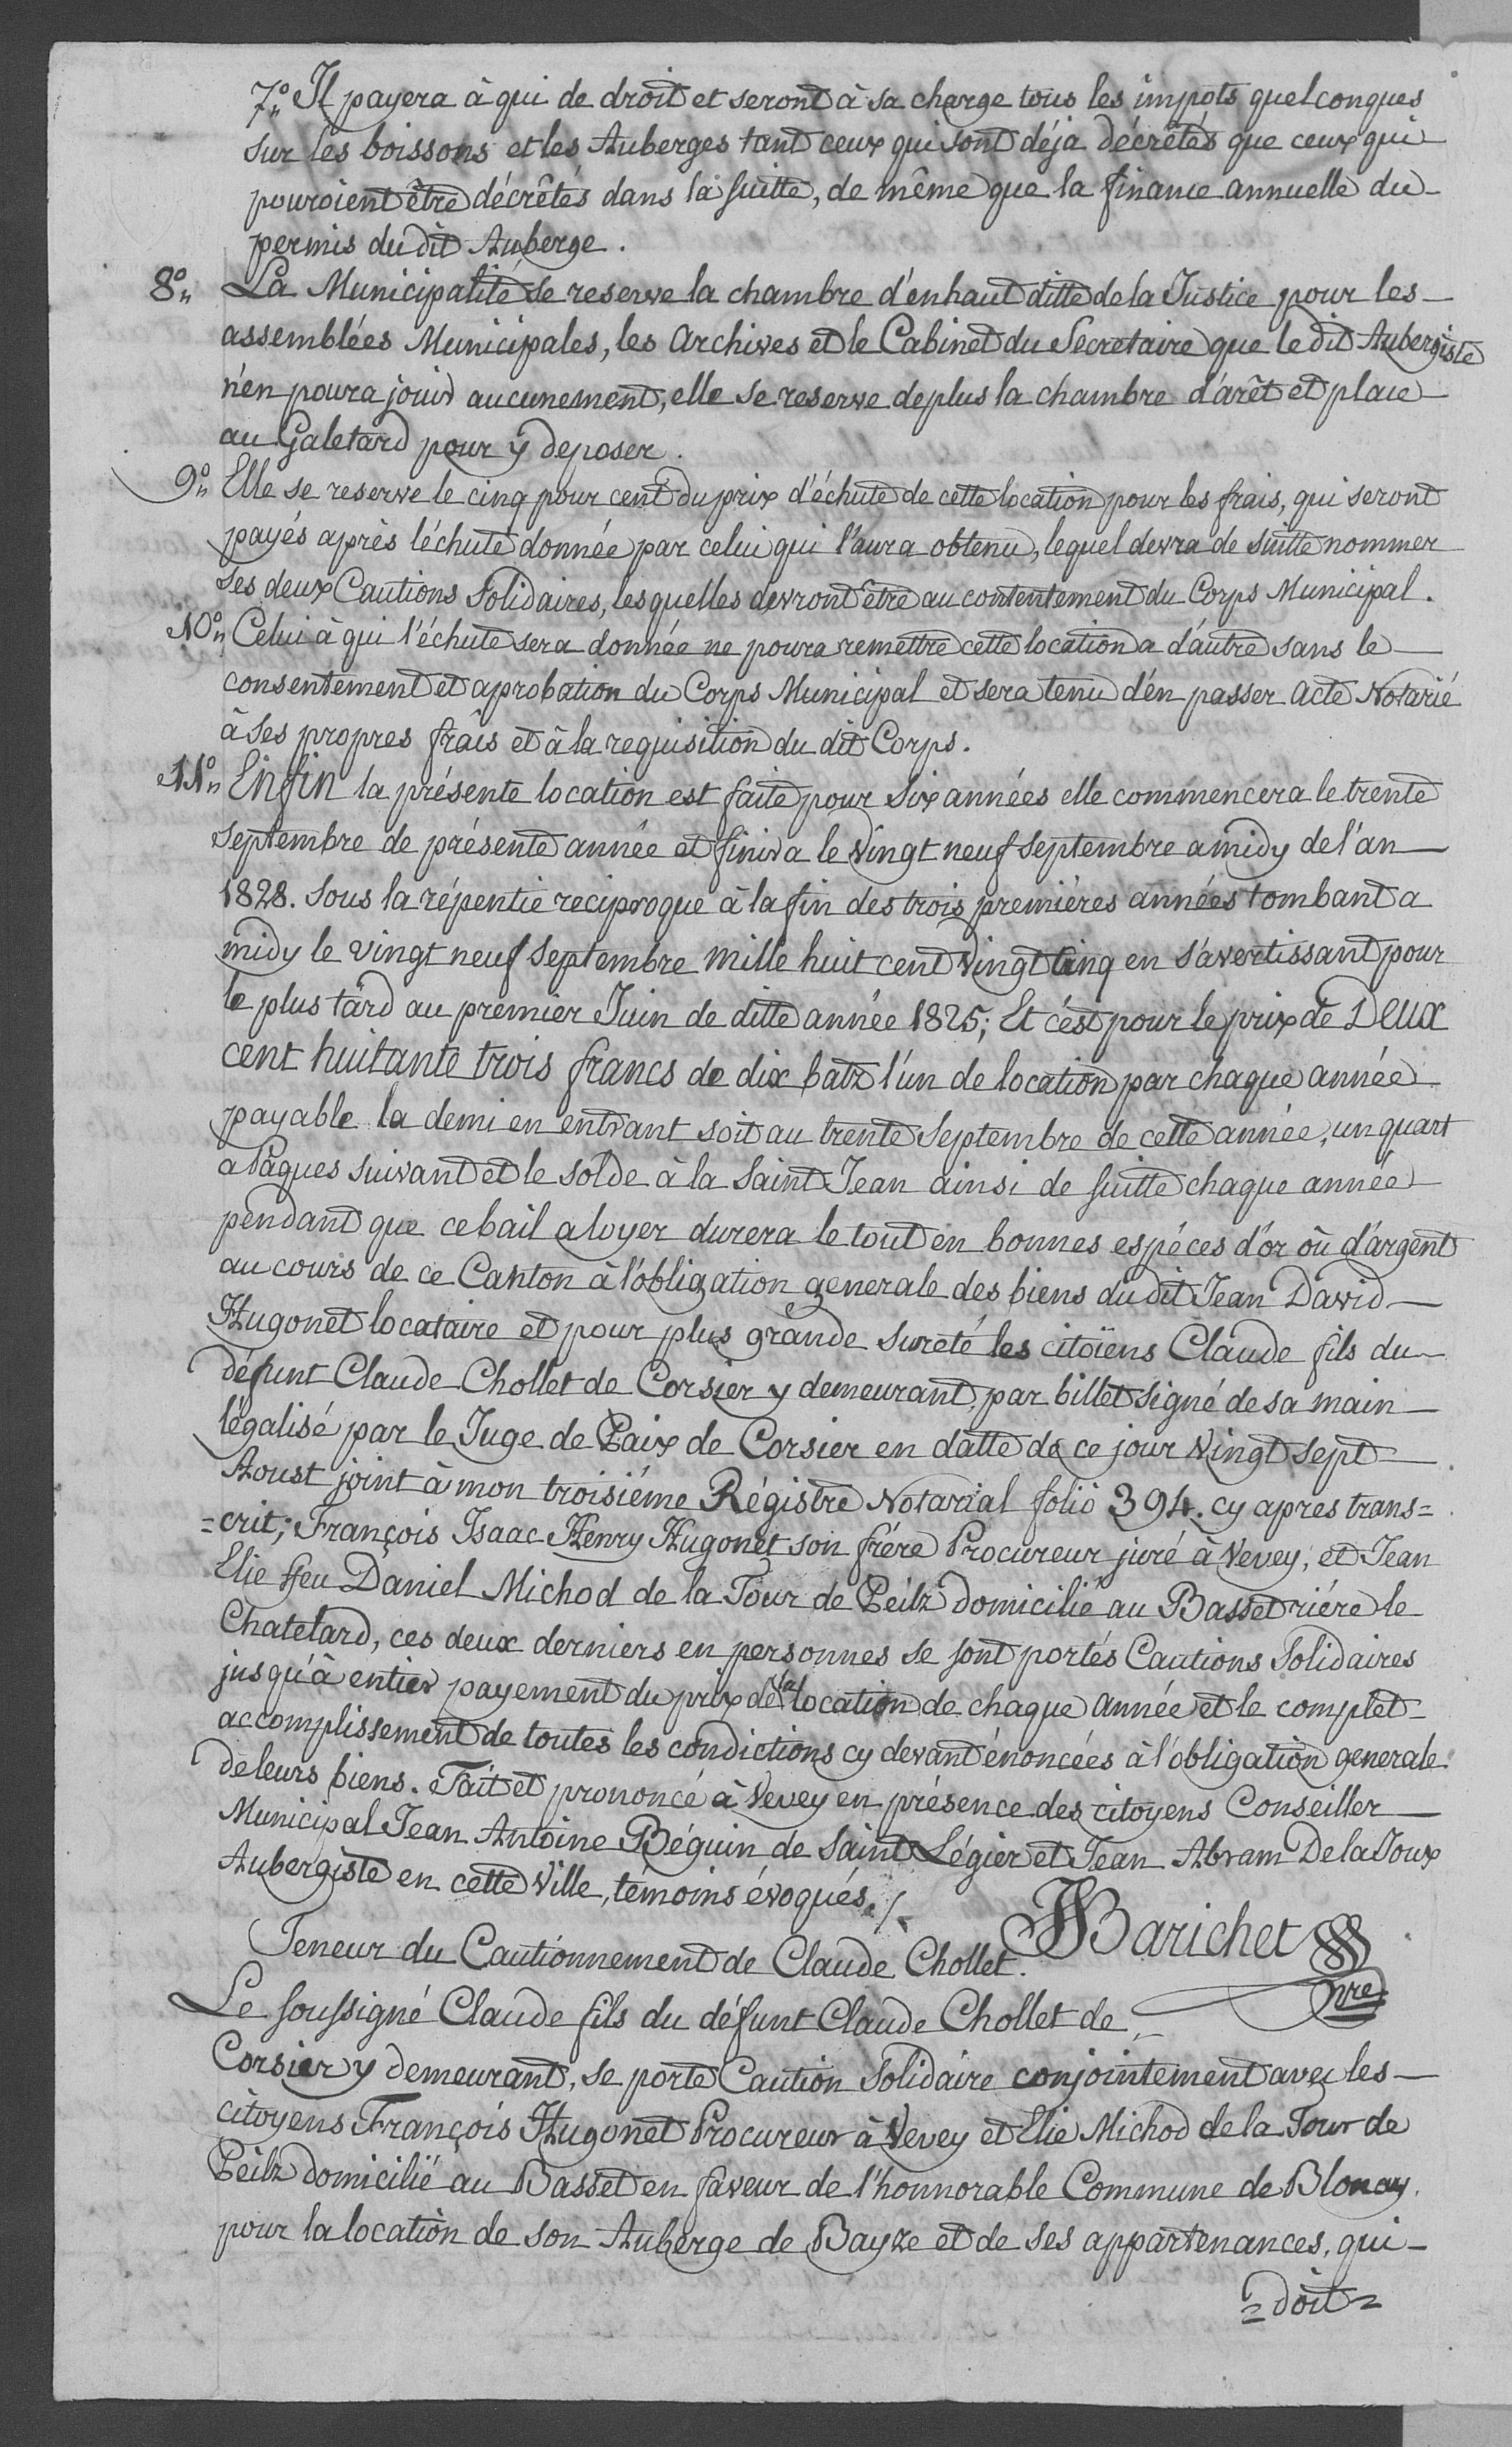 7.° Il payera à qui de droit et seront à sa charge tous les impots quelconques
sur les boissons et les Auberges tant ceux qui sont déja décrêtés que ceux qui
pouroient être décrêtés dans la suitte, de même que la finance annuelle du
permis du dit Auberge.
8.° La Municipalité se reserve la chambre d'enhaut ditte de la Justice pour les
assemblées Municipales, les Archives et le Cabinet du Secretaire que le dit Aubergiste
n'en poura jouir aucunement, elle se reserve de plus la chambre d'arêt et place
au Galetard pour y deposer.
9.° Elle se reserve le cinq pour cent du prix d'échute de cette location pour les frais, qui seront
payés après l'échute donnée par celui qui l'aura obtenu, lequel devra de suitte nommer
ses deux Cautions Solidaires, lesquelles devront être au contentement du Corps Municipal.
10.° Celui à qui l'échute sera donnée ne poura remettre cette location a d'autre sans le
consentement et aprobation du Corps Municipal et sera tenu d'en passer Acte Notarié
à ses propres frais et à la requisition du dit Corps.
11.° Enfin la présente location est faite pour six années elle commencera le trente
Septembre de présente année et finira le vingt neuf Septembre a midy de l'an
1828. sous la répentie reciproque à la fin des trois premiéres années tombant a
midy le vingt neuf Septembre mille huit cent vingt cinq en s'avertissant pour
le plus tard au premier Juin de ditte année 1825; Et c'est pour le prix de Deux
cent huitante trois francs de dix batz l'un de location par chaque année
payable la demi en entrant soit au trente Septembre de cette année, un quart
a Pâques suivant et le solde à la Saint Jean ainsi de suitte chaque année
pendant que ce bail a loyer durera le tout en bonnes espéces d'or où d'argent
au cours de ce Canton à l'obligation generale des biens du dit Jean David
Hugonet locataire et pour plus grande sureté les citoïens Claude fils du
défunt Claude Chollet de Corsier y demeurant, par billet signé de sa main
légalisé par le Juge de Paix de Corsier en datte de ce jour vingt sept
Aoust joint à mon troisiéme Régistre Notarial folio 394. cy apres trans=
=crit; François Isaac Henry Hugonet son frére Procureur juré à Vevey, et Jean
Elie feu Daniel Michod de la Tour de Peilz domicilié au Basset riére le
Chatelard, ces deux derniers en personnes se sont portés Cautions Solidaires
jusqu'à entier payement du prix de la location de chaque année et le complet
accomplissement de toutes les condictions cy devant énoncées à l'obligation generale
de leurs biens. Fait et prononcé à Vevey en présence des citoyens Conseiller
Municipal Jean Antoine Béguin de Saint Légier et Jean Abram De la Joux
Aubergiste en cette Ville, témoins évoqués./.
JS Barichet
nre
Teneur du Cautionnement de Claude Chollet.
Le soussigné Claude fils du défunt Claude Chollet de
Corsier y demeurant, se porte Caution Solidaire conjointement avec les
citoyens François Hugonet Procureur à Vevey et Elie Michod de la Tour de
Peilz domicilié au Basset en faveur de l'honnorable Commune de Blonay
pour la location de son Auberge de Bayze et de ses appartenances, qui
=doit=